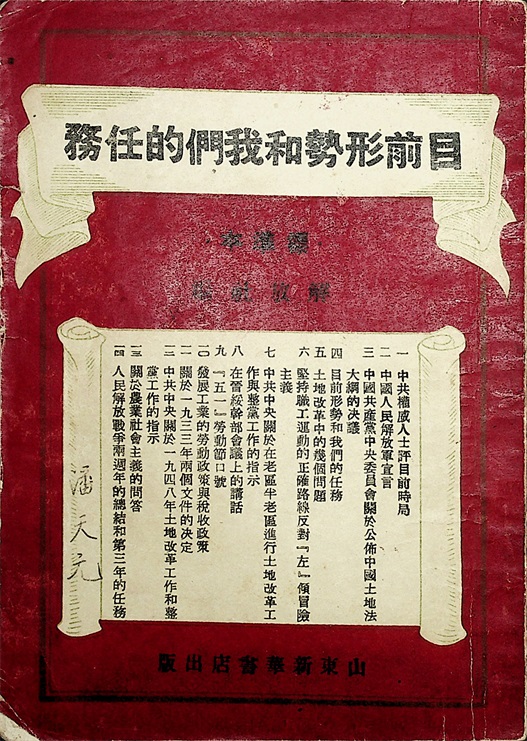 目前形勢和我們的任務
解放社編
一 中共權威人士評目前時局
二 中國人民解放軍宣言
三 中國共產黨中央委員會關於公佈中國土地法
大綱的决議
四 目前形勢和我們的任務
五 土地改革中的幾個問題
六 堅持職工運動的正確路線反對『左』傾冒險
主義
七 中共中央關於在老區半老區進行土地改革工
作與整黨工作的指示
八 在晉綏幹部會議上的講話
九 『五一』勞動節口號
一〇 發展工業的勞動政策與稅收政策
一一 關於一九三三年兩個文件的决定
一二 中共中央關於一九四八年土地改革工作和整
黨工作的指示
一三 關於農業社會主義的問答
一四 人民解放戰爭兩週年的總結和第三年的任務
潘天元
山東新華書店出版